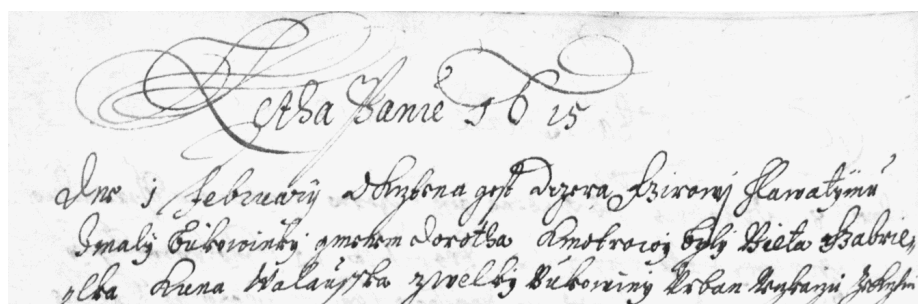 Letha Panie 1615
Dne 1 february Okrztena gest Dczera Jirowj Hlawatymu
Zmaly Bukowinky gmenem Dorotha Kmotrowy byly Bieta Gabrie,
Anna Walausska zwelky Bukowiny Urban